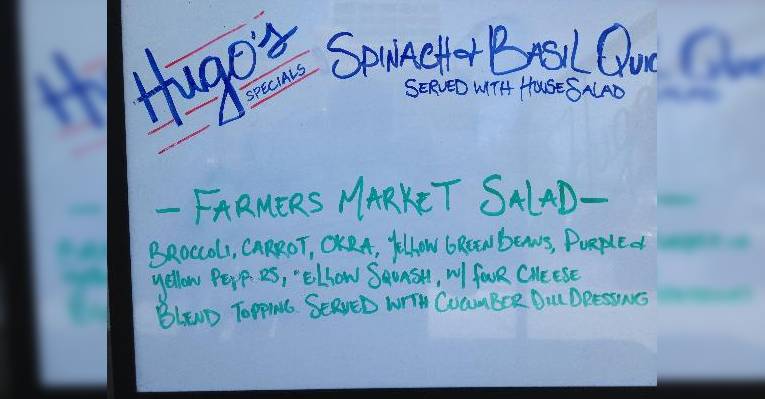 Hugo's
SPECIALS
SPINACH & BASIL
SERVED WITH HOUSE SALAD
- FARMERS MARKET SALAD -
BROCCOLI, CARROT, OKRA, YELLOW GREEN BEANS, PURPLE &
YELLOW SQUASH, W/ FOUR CHEESE
BLEND TOPPING SERVED WITH CUCUMBER DILL DRESSING